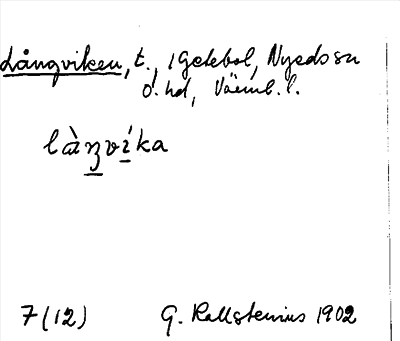 Långviken, t., i Getebol, Nyeds sn
Ö. hd, Värml. l.
là̱ŋví̱ka
7 (12) G. Kallstenius 1902